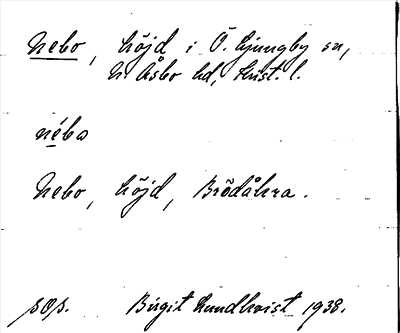 Nebo, höjd i Ö. Ljungby sn,
N Åsbo hd, Krist. l.
nébo
Nebo, höjd, Brödåkra.
SOS. Birgit Lundkvist 1938.